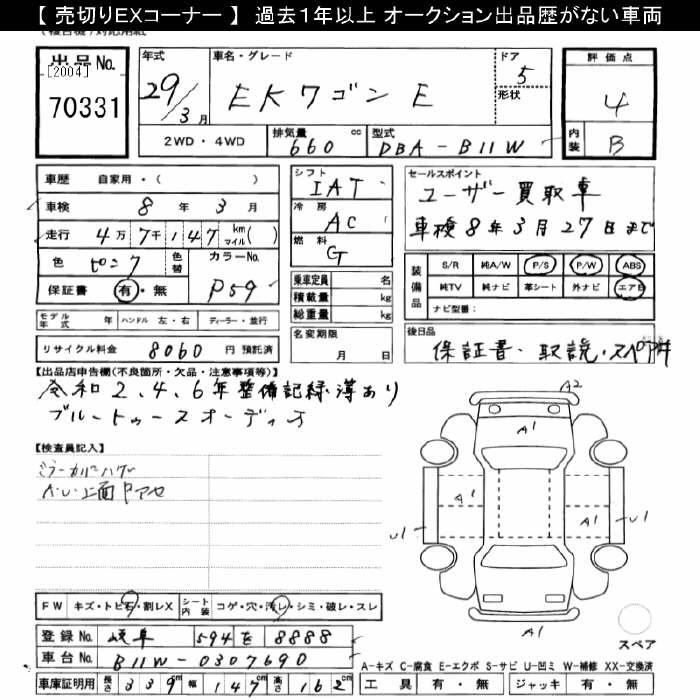 【 売切りEXコーナー 】 過去１年以上 オークション出品歴がない車両
出品No.
[2004]
70331
年式
29/3月
車名・グレード
EKワゴン E
ドア
5
形状
評価点
4
内装
B
2WD・4WD
排気量
660 cc
型式
DBA-B11W
車歴 自家用・( )
車検 8年 3月
走行 4万7千147 km マイル( )
色 ピンク
色替
カラーNo.
P59
保証書 有・無
シフト
IAT
冷房
AC
燃料
G
セールスポイント
ユーザー買取車
車検8年3月27日まで
装備品
S/R 純A/W P/S P/W ABS
純TV 純ナビ 革シート 外ナビ エアB
ナビ型番:
乗車定員 名
積載量 kg
総重量 kg
モデル年式 年 ハンドル 左・右 ディーラー・並行
名変期限
月 日
リサイクル料金 8060 円 預託済
後日品
保証書・取説・スペアキー
【出品店申告欄(不良箇所・欠品・注意事項等)】
令和2、4、6年整備記録簿あり
ブルートゥースオーディオ
【検査員記入】
A2
A1
A1
A1
A1
U1
U1
A1
FW キズ・トビ石・割レX
シート内装 コゲ・穴・汚レ・シミ・破レ・スレ
登録No. 岐阜 594 を 8888
車台No. B11W-0307690
車庫証明用 長さ 339cm 幅 147cm 高さ 162cm
スペア
A-キズ C-腐食 E-エクボ S-サビ U-凹ミ W-補修 XX-交換済
工具 有・無 ジャッキ 有・無